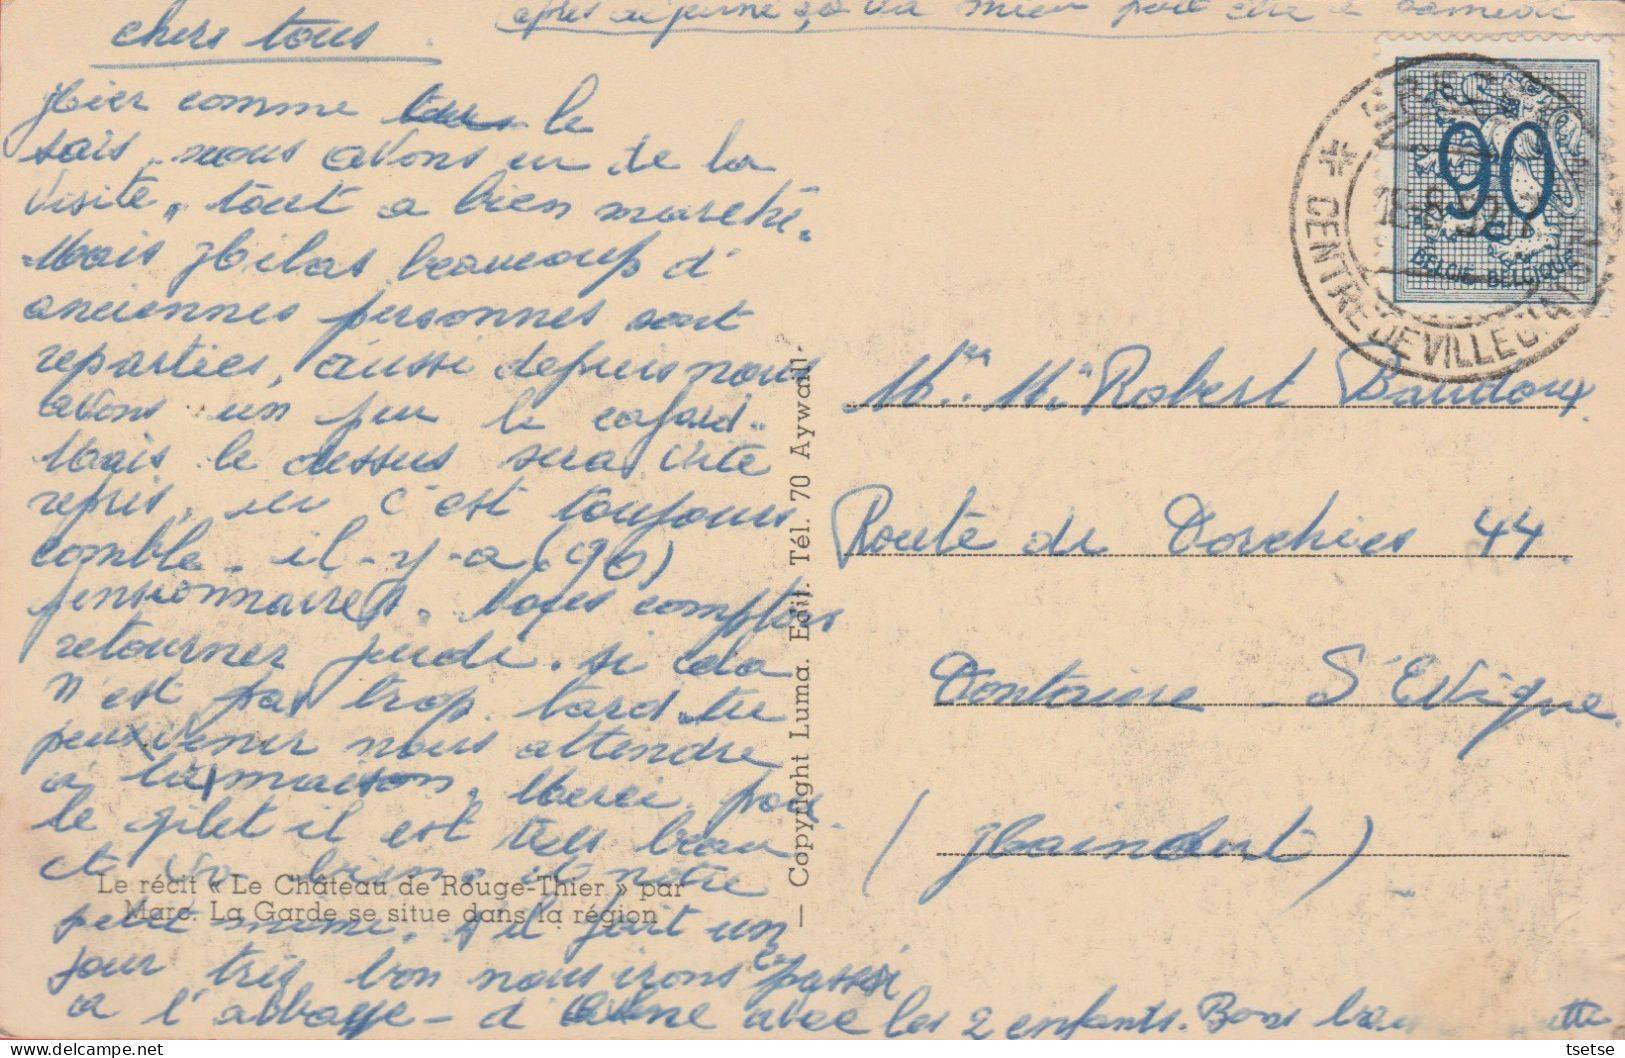 après ça va mieu peut être à samedi
chers tous
Hier comme tu le
sais, nous avons eu de la
visite, tout a bien marché.
Mais Hélas beaucoup d'
anciennes personnes sont
reparties, aussi depuis nous
avons un peu le cafard.
Mais le dessus sera vite
repris, ici c'est toujours
comble. il-y-a (90)
pensionnaires. Nous comptons
retourner jeudi. si cela
n'est pas trop tard tu
peux venir nous attendre
à la maison. Merci pour
le gilet il est très beau
notre
petite mimi. s'il fait un
jour très bon nous irons le passé
a l'abbaye - d' Aulne avec les 2 enfants. Bons
Le récit « Le Château de Rouge-Thier » par
Marc. La Garde se situe dans la région
— Copyright Luma. Edit. Tél. 70 Aywaill-
90
BELGIE-BELGIQUE
CENTRE DE VILLEGIATURE
Mr. Me Robert Baudoux
Route de Vorchies 44
Fontaine - L'Evêque
(Hainaut)
tsetse